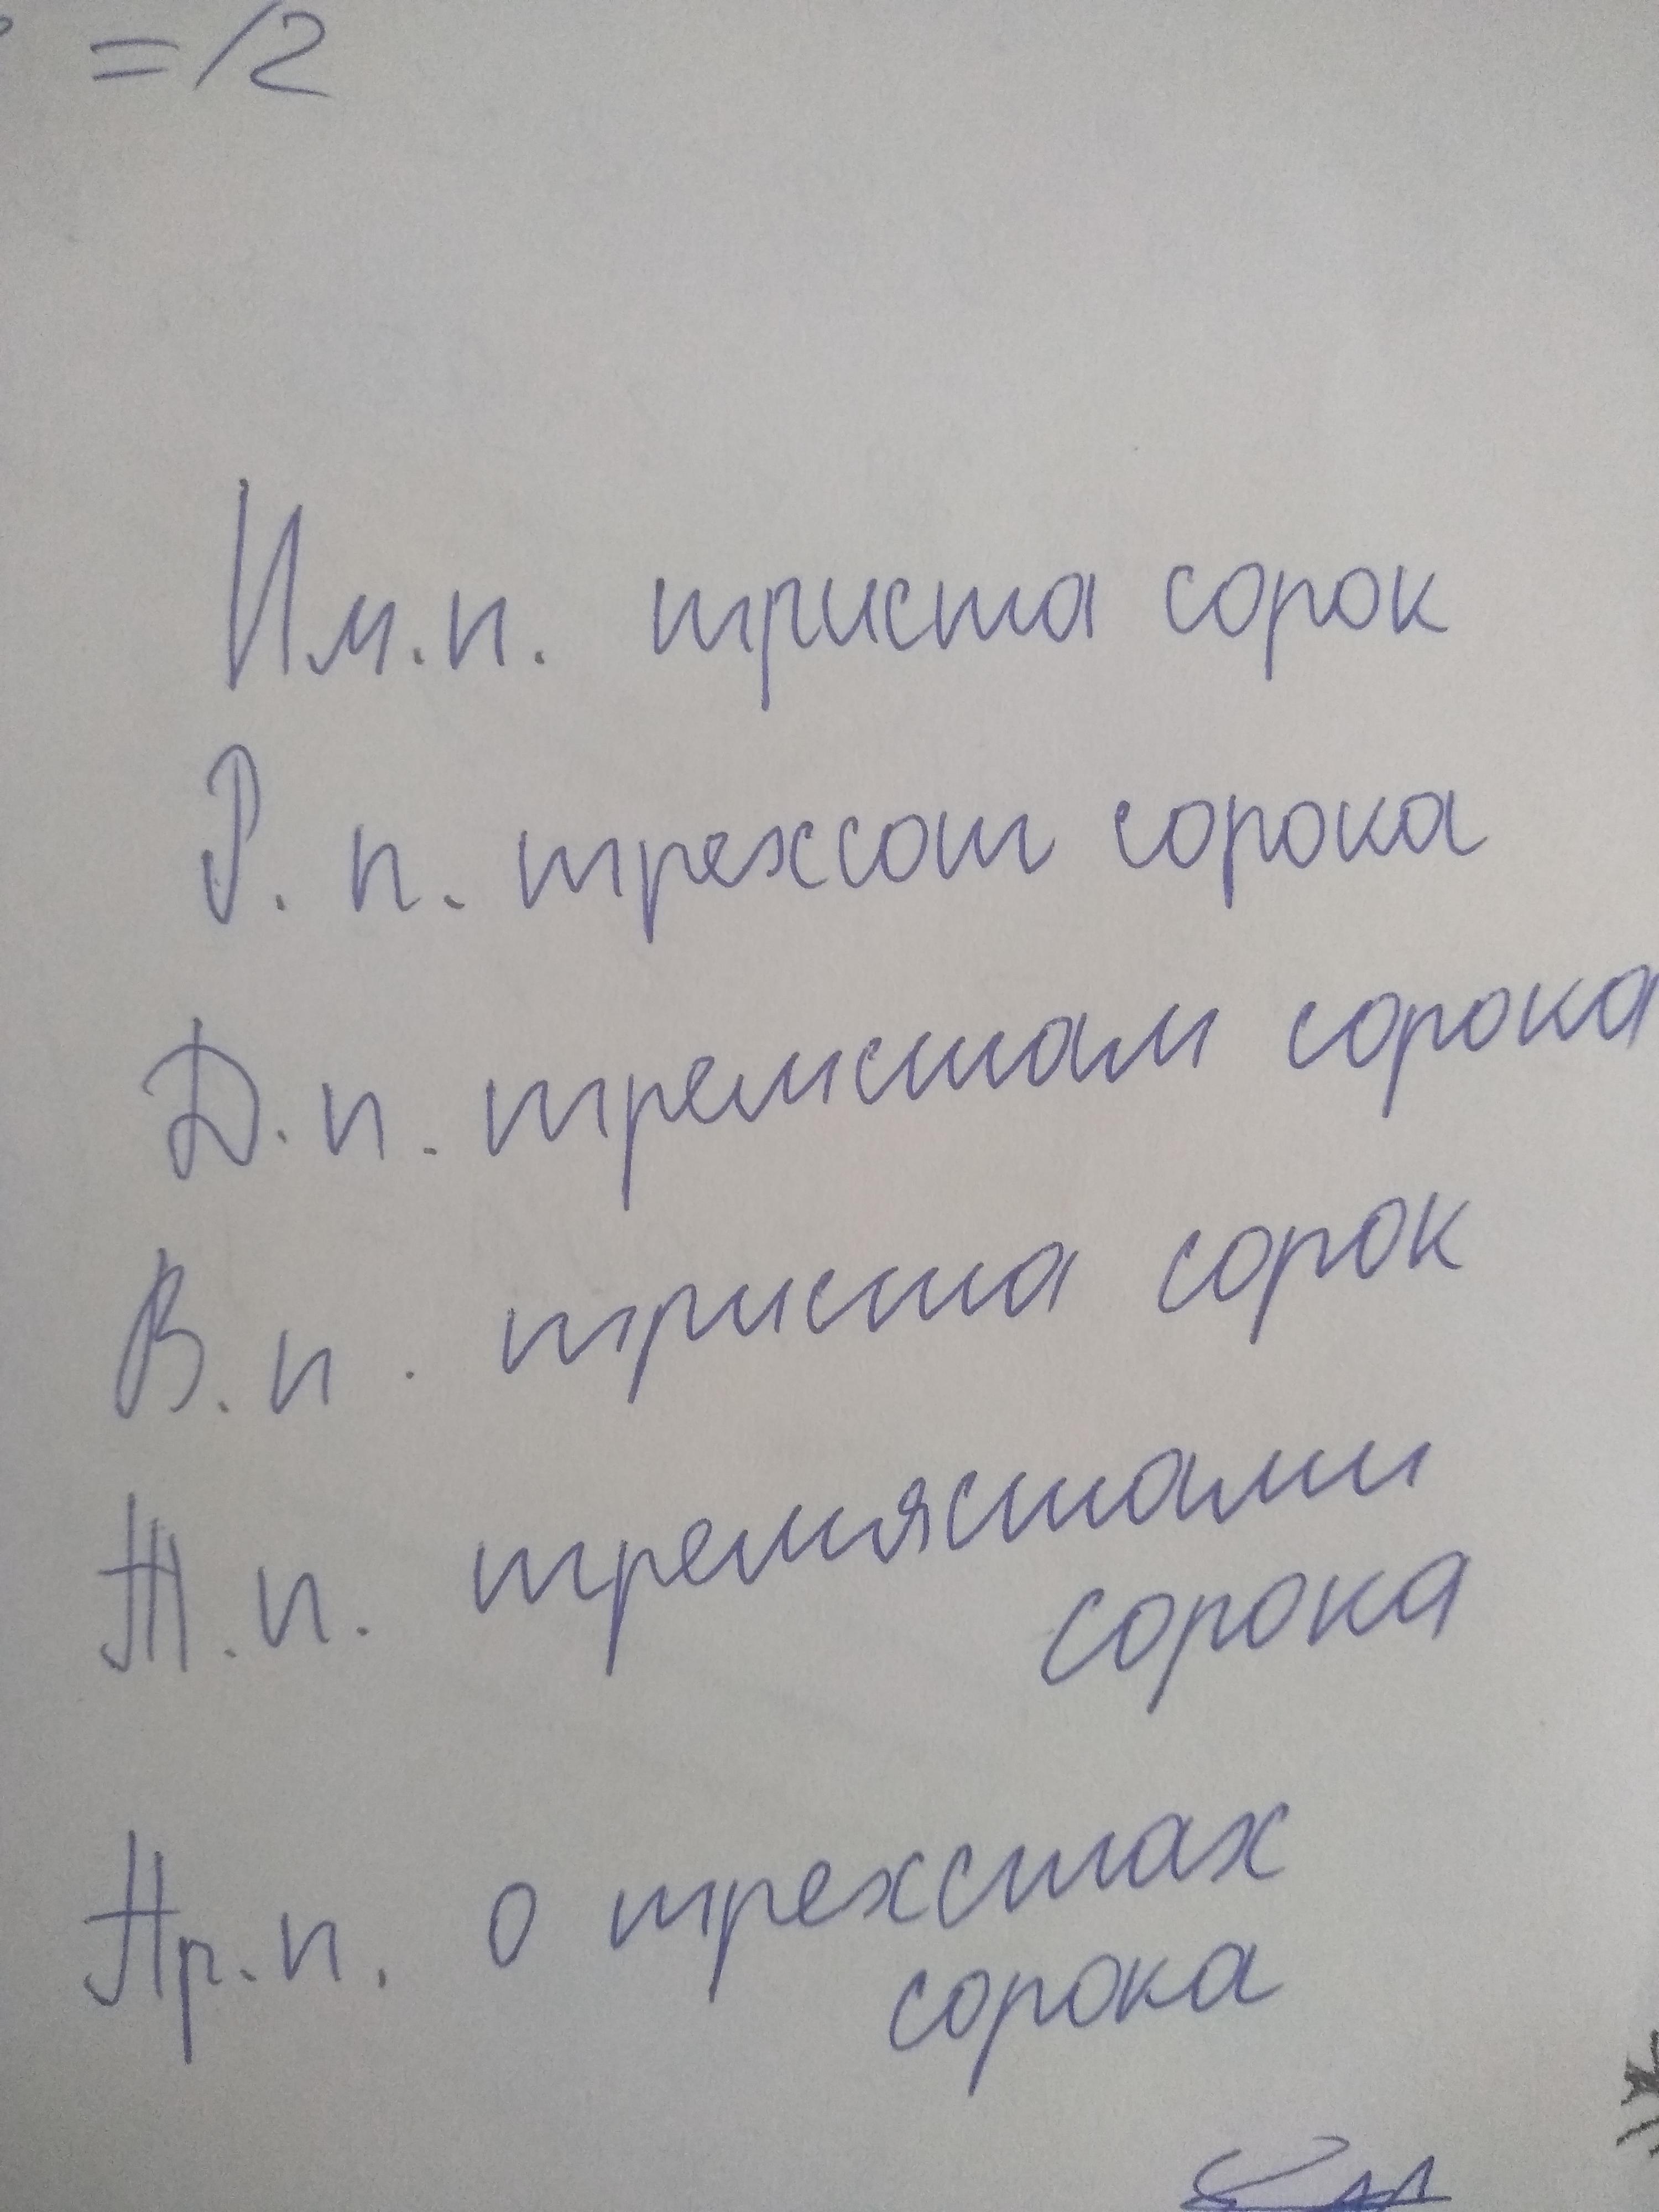 = 12
Им.п. триста сорок
Р.п. трехсот сорока
Д.п. тремстам сорока
В.п. триста сорок
Т.п. тремястами
сорока
Пр.п. о трехстах
сорока